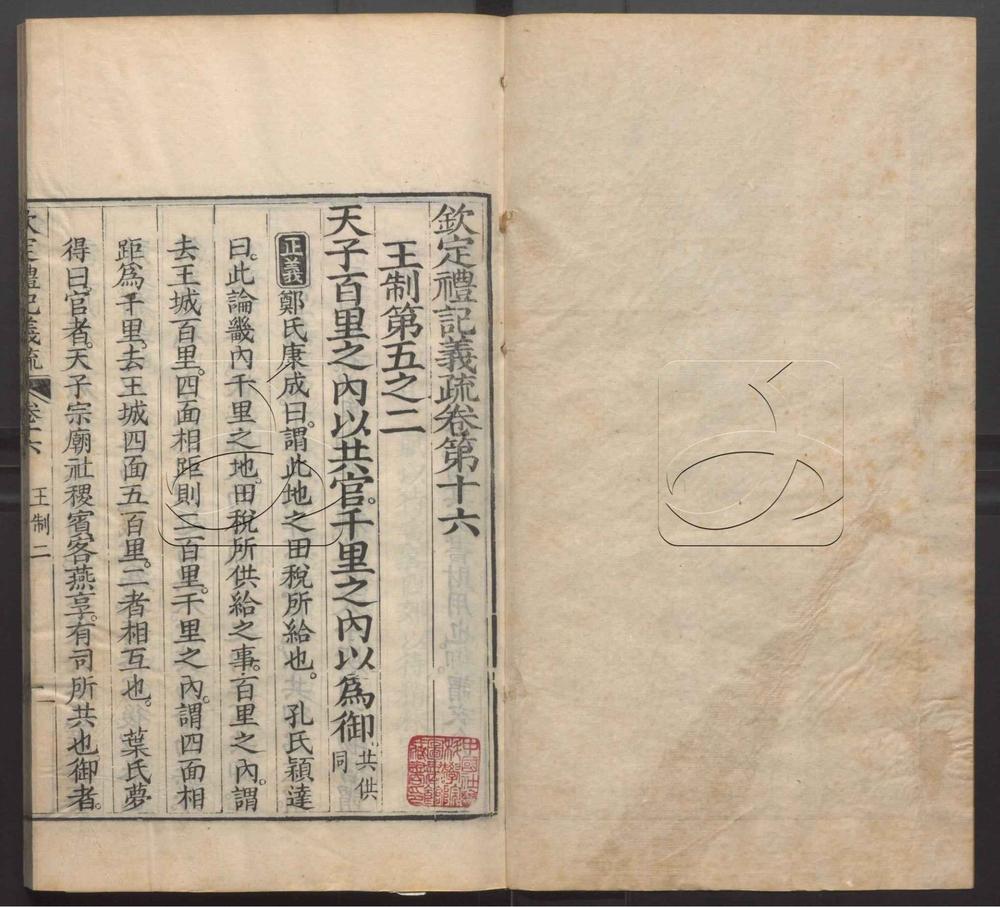 欽定禮記義疏卷第十六
王制第五之二
天子百里之內以共官。千里之內以爲御共供同
正義 鄭氏康成曰。謂此地之田稅所給也。 孔氏穎達
曰。此論畿內千里之地。田稅所供給之事。百里之內。謂
去王城百里。四面相距則二百里。千里之內。謂四面相
距爲千里。去王城四面五百里。二者相互也。 葉氏夢
得曰。官者。天子宗廟社稷賓客燕享。有司所共也。御者。
欽定禮記義疏 卷十六 王制二 一